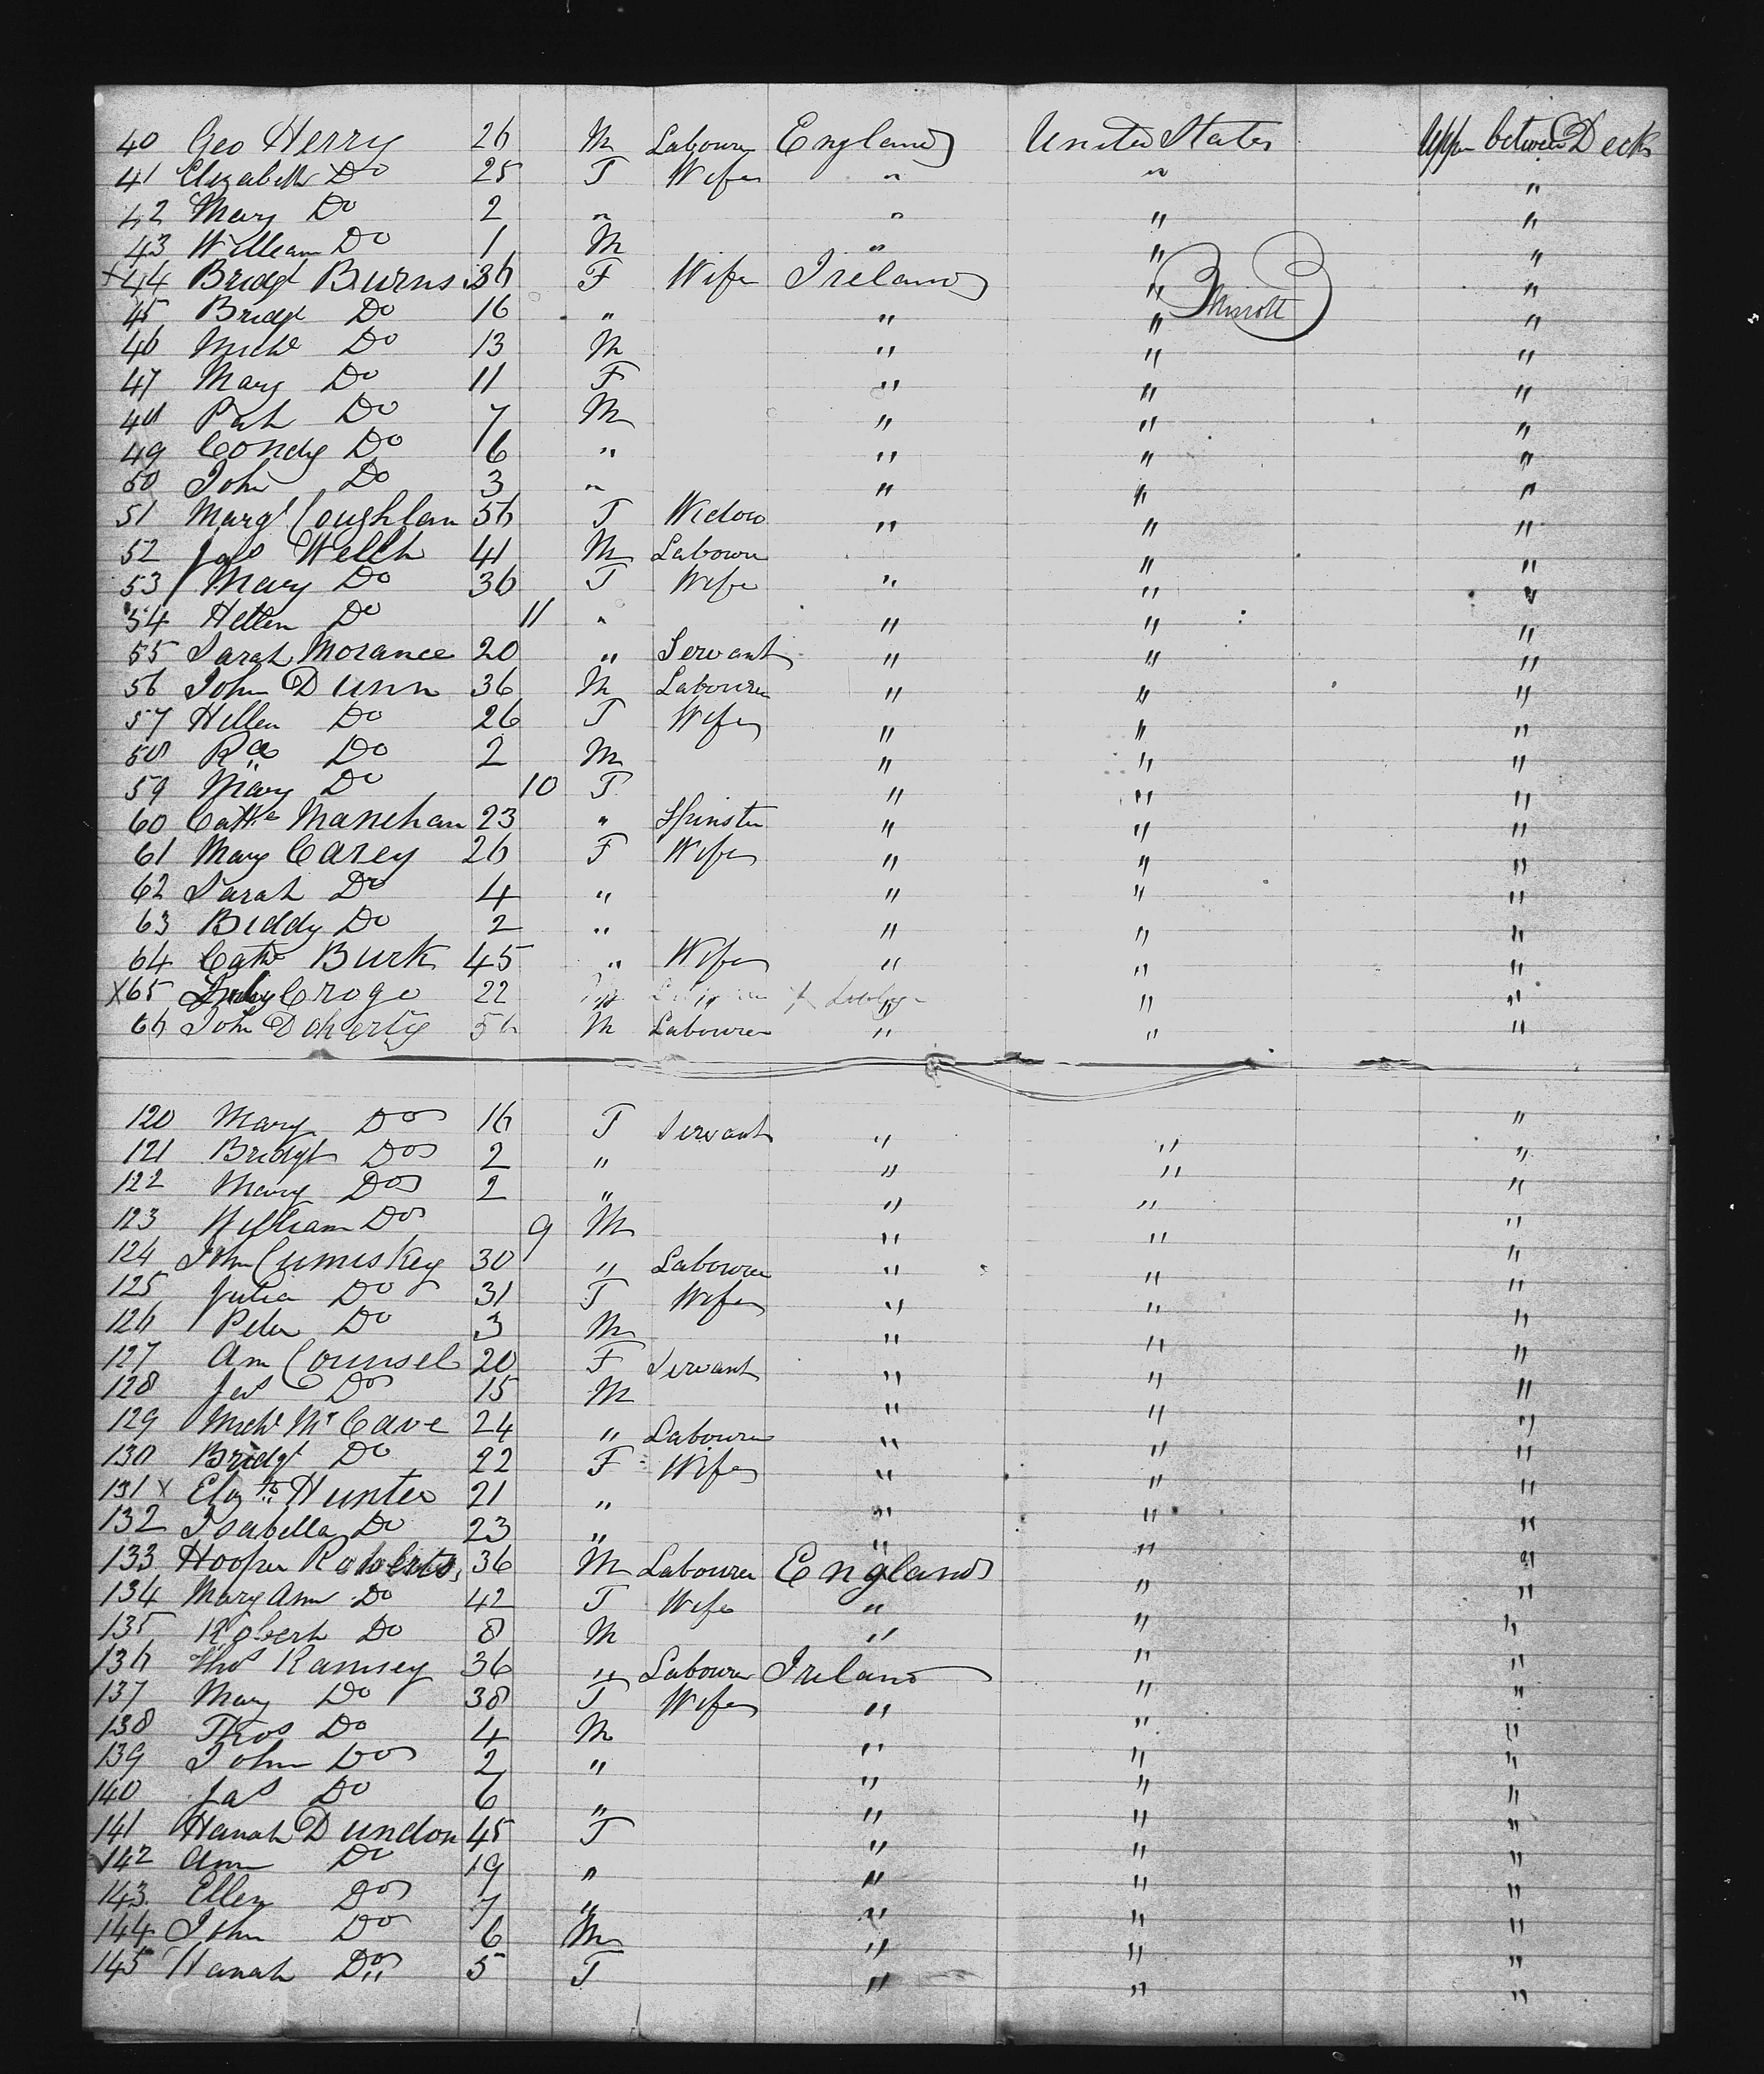 40 Geo Herry 26 M Labourer England United States Upper between Decks
41 Elizabeth Do 25 F Wife " " "
42 Mary Do 2 " " " "
43 William Do 1 M " " "
x44 Bridgt Burns 36 F Wife Ireland " "
45 Bridgt Do 16 " " " "
46 Michl Do 13 M " " "
47 Mary Do 11 F " " "
48 Pat Do 7 M " " "
49 Condy Do 6 " " " "
50 John Do 3 " " " "
51 Margt Coughlan 56 F Widow " " "
52 Jas Welch 41 M Labourer " "
53 Mary Do 36 F Wife " " "
54 Hellen Do 11 " " " "
55 Sarah Morance 20 " Servant " " "
56 John Dunn 36 M Labourer " " "
57 Hellen Do 26 F Wife " " "
58 Do 2 M " " "
59 Mary Do 10 F " " "
60 Cathe Manehan 23 " Spinster " " "
61 Mary Carey 26 F Wife " " "
62 Sarah Do 4 " " " "
63 Biddy Do 2 " " " "
64 Cathe Burk 45 " Wife " " "
x65 Croge 22 " " "
66 John Doherty 56 M Labourer " " "
120 Mary Do 16 F Servant " " "
121 Bridgt Do 2 " " " "
122 Mary Do 2 " " " "
123 William Do 9 M " " "
124 John Cumiskey 30 " Labourer " " "
125 Julia Do 31 F Wife " " "
126 Peter Do 3 M " " "
127 Ann Counsel 20 F Servant " " "
128 Jas Do 15 M " " "
129 Michl McCave 24 " Labourer " " "
130 Bridgt Do 22 F Wife " " "
131 x Elizth Hunter 21 " " " "
132 Isabella Do 23 " " " "
133 Hooper Roberts 36 M Labourer England " "
134 Mary Ann Do 42 F Wife " " "
135 Robert Do 8 M " " "
136 Thos Ramsey 36 " Labourer Ireland " "
137 Mary Do 38 F Wife " " "
138 Thos Do 4 M " " "
139 John Do 2 " " " "
140 Jas Do 6 " " " "
141 Hanah Dundon 45 F " " "
142 Ann Do 19 " " " "
143 Ellen Do 7 " " " "
144 John Do 6 M " " "
145 Hanah Do 5 F " " "